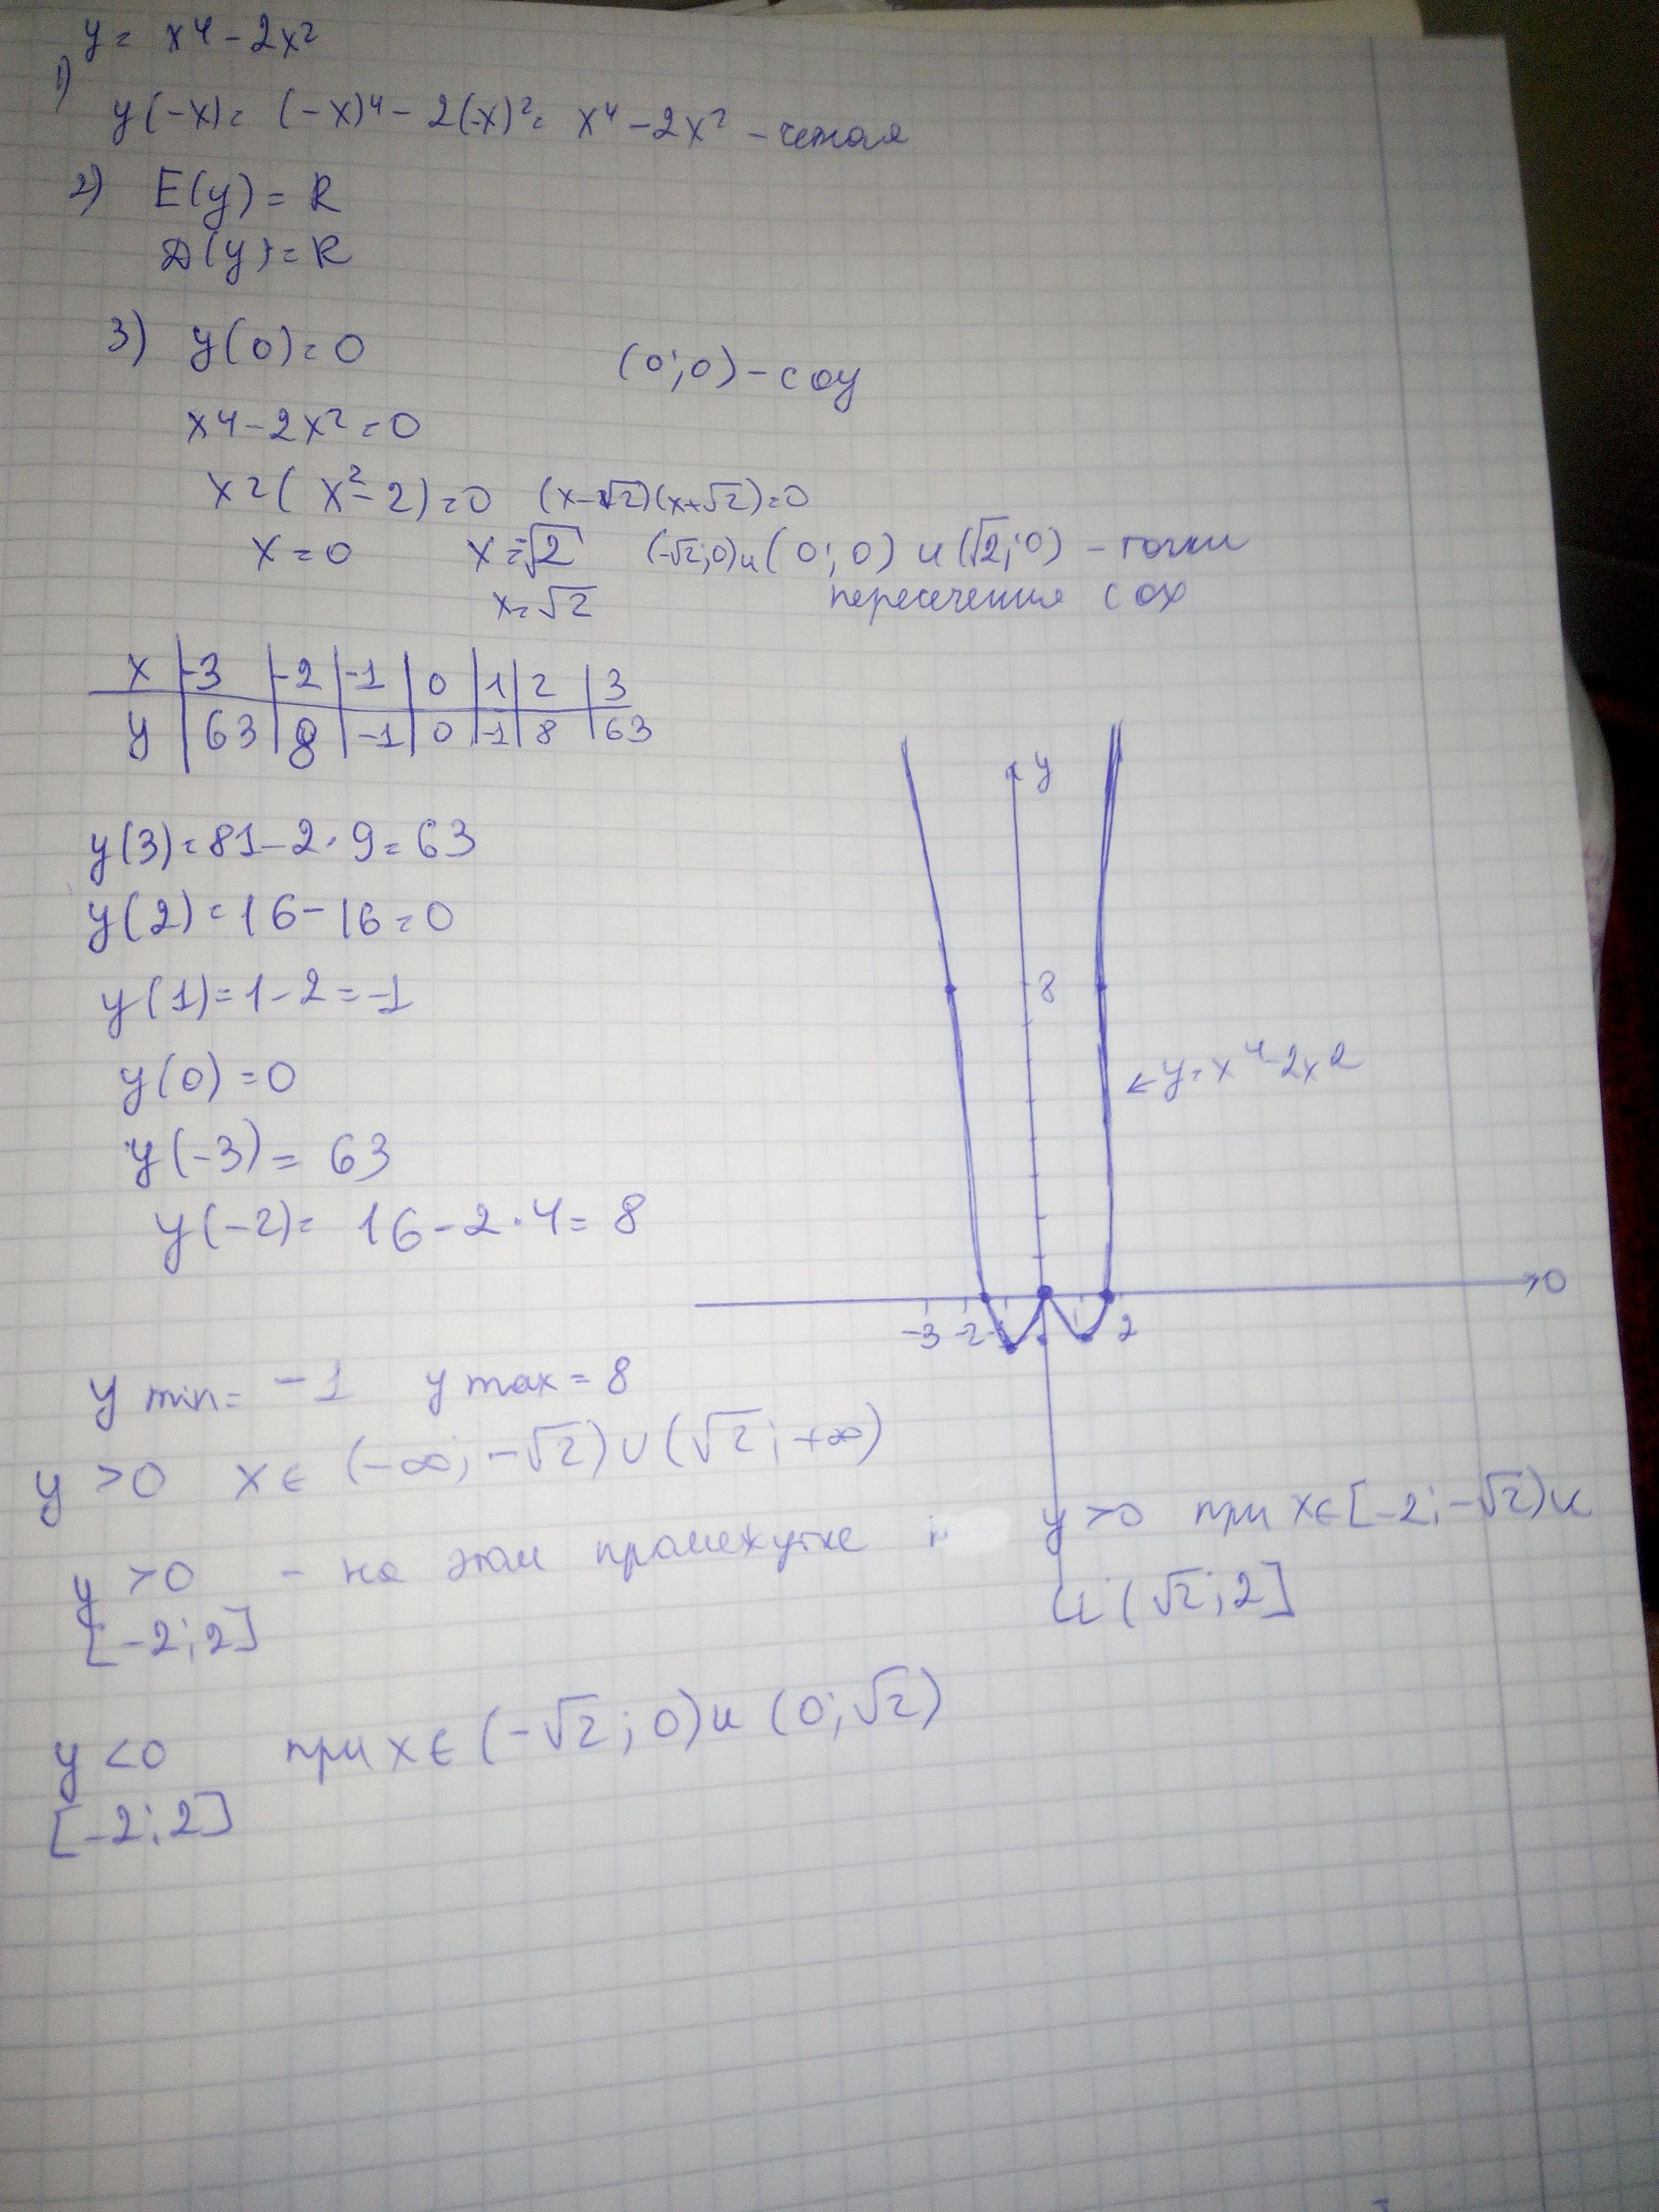 y = x⁴ - 2x²
1)
y(-x) = (-x)⁴ - 2(-x)² = x⁴ - 2x² - четная
2) E(y) = R
D(y) = R
3) y(0) = 0 (0;0) - с оу
x⁴ - 2x² = 0
x²(x² - 2) = 0 (x-√2)(x+√2)=0
x = 0 x = -√2 (-√2;0) и (0;0) и (√2;0) - точки
x = √2 пересечения с ох
x -3 -2 -1 0 1 2 3
y 63 8 -1 0 -1 8 63
y(3) = 81 - 2·9 = 63
y(2) = 16 - 16 = 0
y(1) = 1 - 2 = -1
y(0) = 0
y(-3) = 63
y(-2) = 16 - 2·4 = 8
y
8
← y = x⁴ - 2x²
0
-3 -2 1 2
y min = -1 y max = 8
y > 0 x ∈ (-∞; -√2) ∪ (√2; +∞)
y > 0 - на этом промежутке y > 0 при x ∈ [-2; -√2) и
[-2;2] и (√2; 2]
y < 0 при x ∈ (-√2; 0) и (0; √2)
[-2;2]